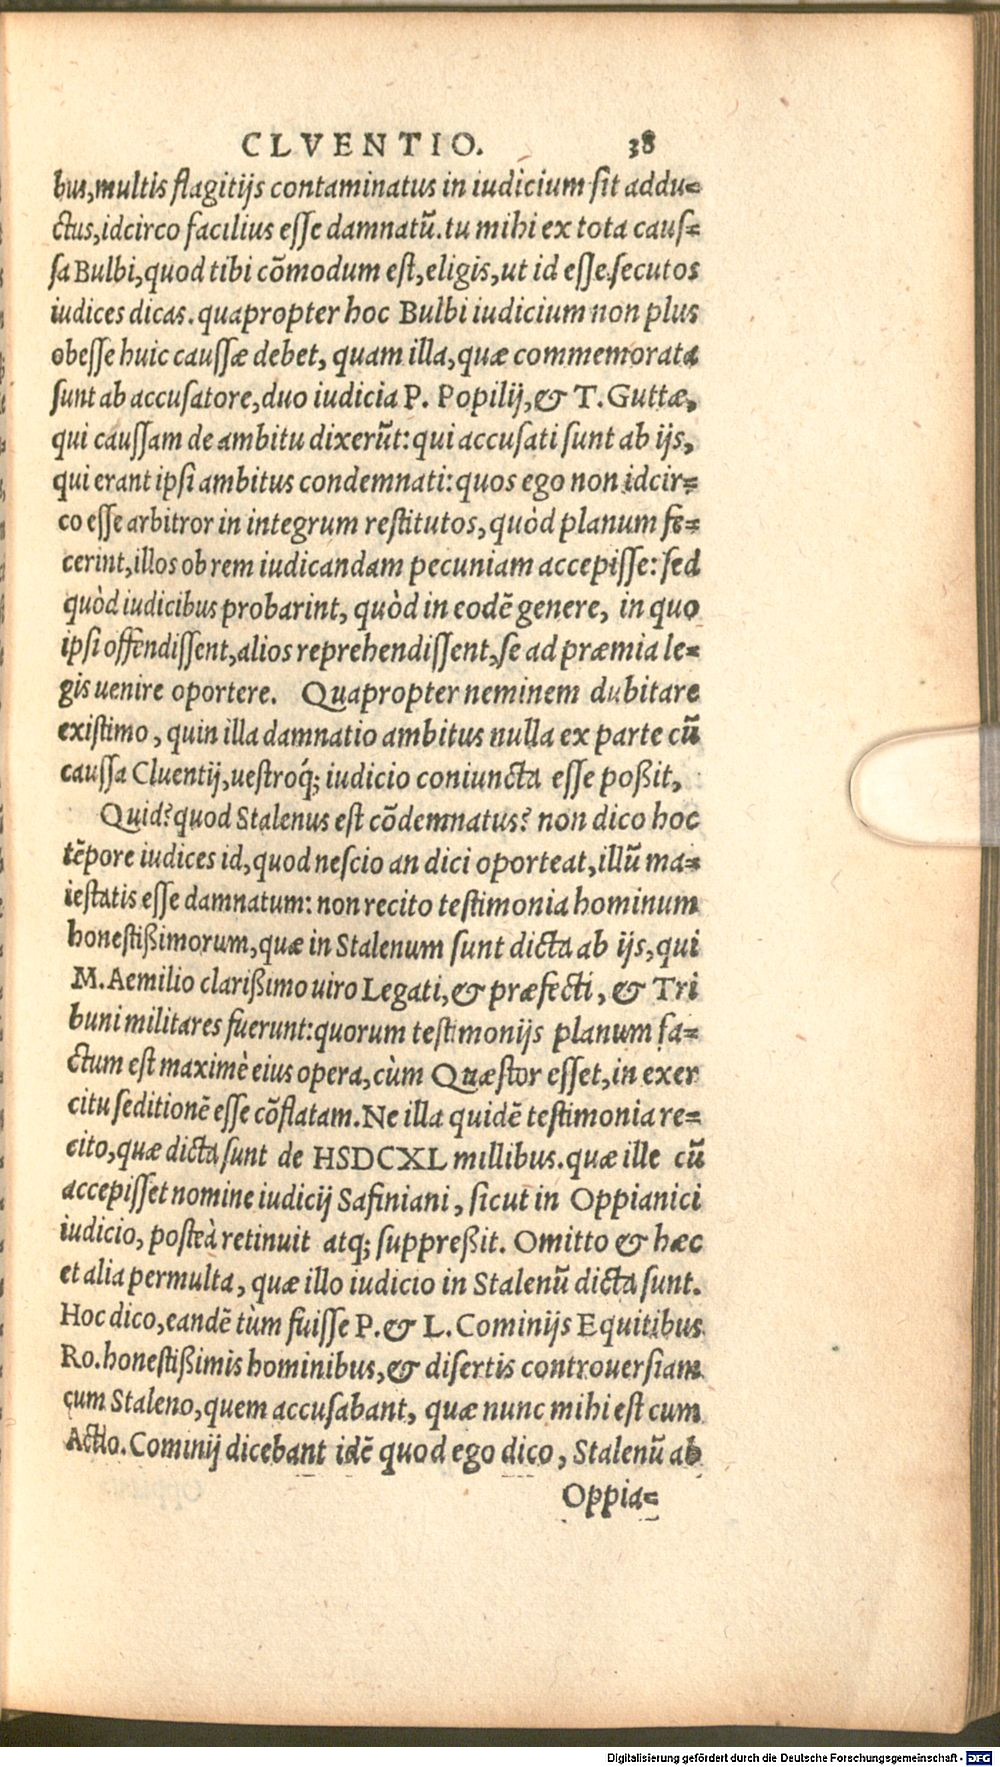 CLVENTIO. 38
bus, multis flagitijs contaminatus in iudicium sit addu=
ctus, idcirco facilius esse damnatū. tu mihi ex tota caus=
sa Bulbi, quod tibi cōmodum est, eligis, ut id esse secutos
iudices dicas. quapropter hoc Bulbi iudicium non plus
obesse huic caussæ debet, quam illa, quæ commemorata
sunt ab accusatore, duo iudicia P. Popilij, & T. Guttæ,
qui caussam de ambitu dixerūt: qui accusati sunt ab ijs,
qui erant ipsi ambitus condemnati: quos ego non idcir=
co esse arbitror in integrum restitutos, quòd planum fe=
cerint, illos ob rem iudicandam pecuniam accepisse: sed
quòd iudicibus probarint, quòd in eodē genere, in quo
ipsi offendissent, alios reprehendissent, se ad præmia le=
gis uenire oportere. Quapropter neminem dubitare
existimo, quin illa damnatio ambitus nulla ex parte cū
caussa Cluentij, uestroq́; iudicio coniuncta esse poßit,
Quid? quod Stalenus est cōdemnatus? non dico hoc
tēpore iudices id, quod nescio an dici oporteat, illū ma=
iestatis esse damnatum: non recito testimonia hominum
honestißimorum, quæ in Stalenum sunt dicta ab ijs, qui
M. Aemilio clarißimo uiro Legati, & præfecti, & Tri
buni militares fuerunt: quorum testimonijs planum fa=
ctum est maximè eius opera, cùm Quæstor esset, in exer
citu seditionē esse cōflatam. Ne illa quidē testimonia re=
cito, quæ dicta sunt de HSDCXL millibus. quæ ille cū
accepisset nomine iudicij Safiniani, sicut in Oppianici
iudicio, posteà retinuit atq; suppreßit. Omitto & hæc
et alia permulta, quæ illo iudicio in Stalenū dicta sunt.
Hoc dico, eandē tùm fuisse P. & L. Cominijs Equitibus
Ro. honestißimis hominibus, & disertis controuersiam
cum Staleno, quem accusabant, quæ nunc mihi est cum
Actio. Cominij dicebant idē quod ego dico, Stalenū ab
Oppia=
Digitalisierung gefördert durch die Deutsche Forschungsgemeinschaft - DFG